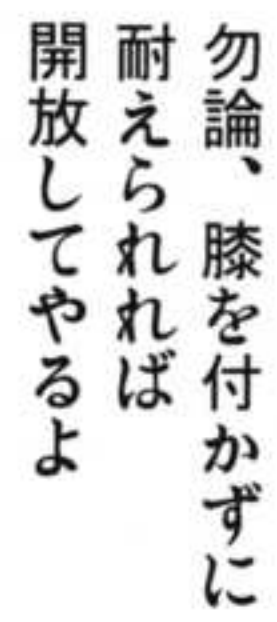 勿論、膝を付かずに
耐えられれば
開放してやるよ